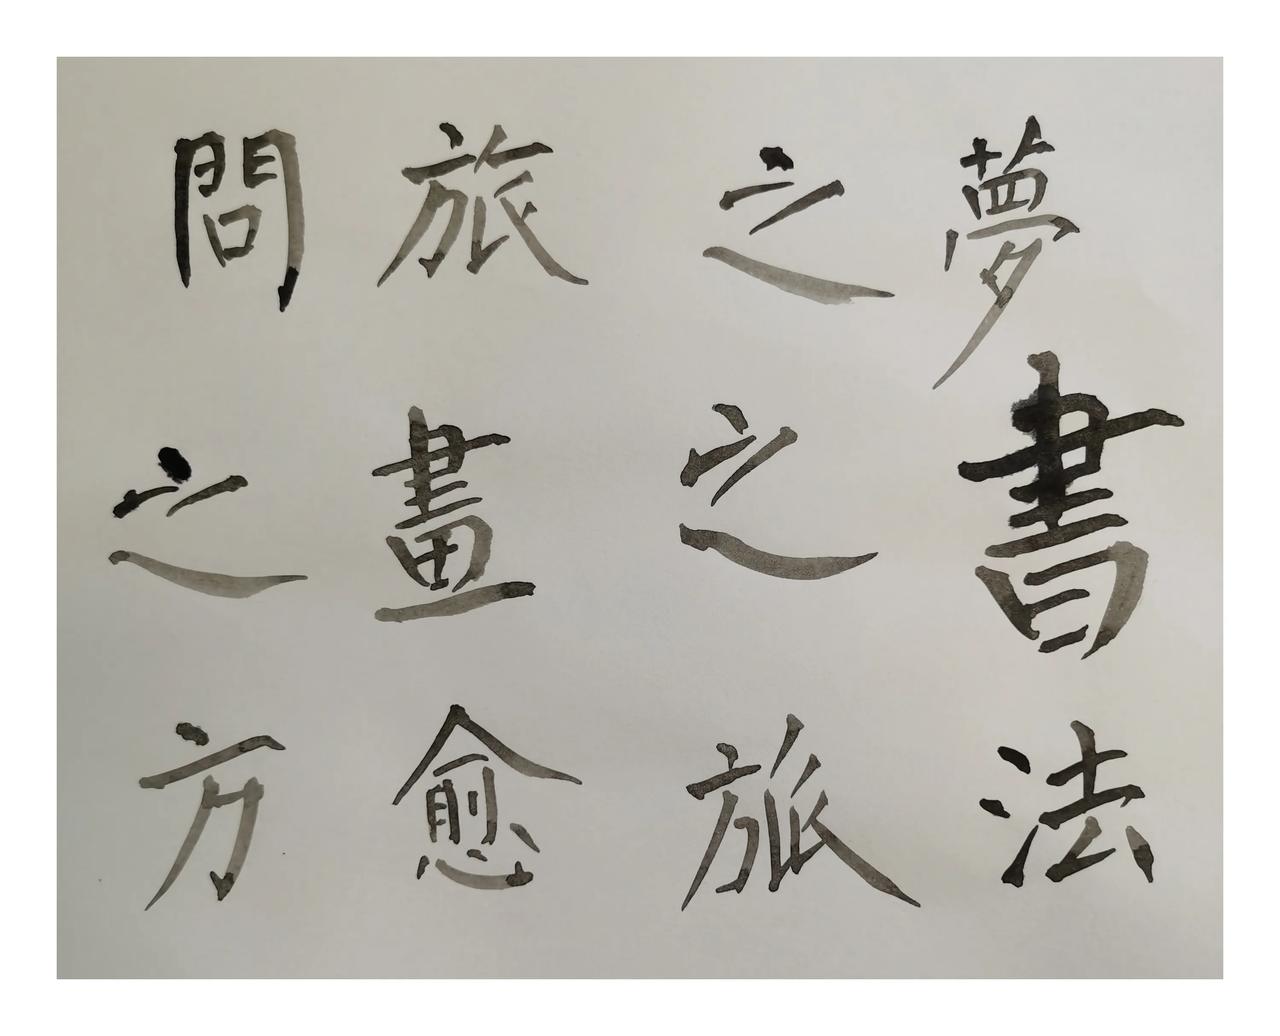 夢書法
之之旅
旅畫愈
問之方